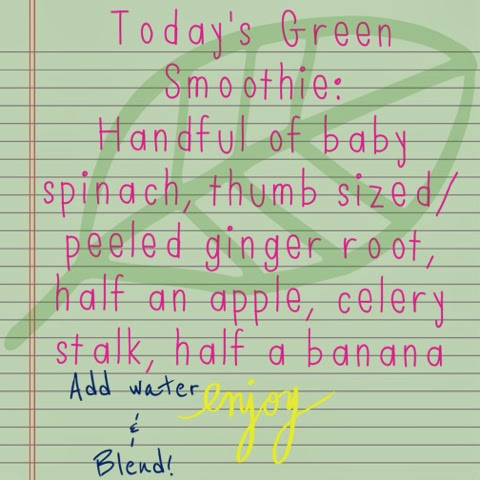 Today's Green
Smoothie:
Handful of baby
spinach, thumb sized/
peeled ginger root,
half an apple, celery
stalk, half a banana
Add water
&
Blend!
enjoy